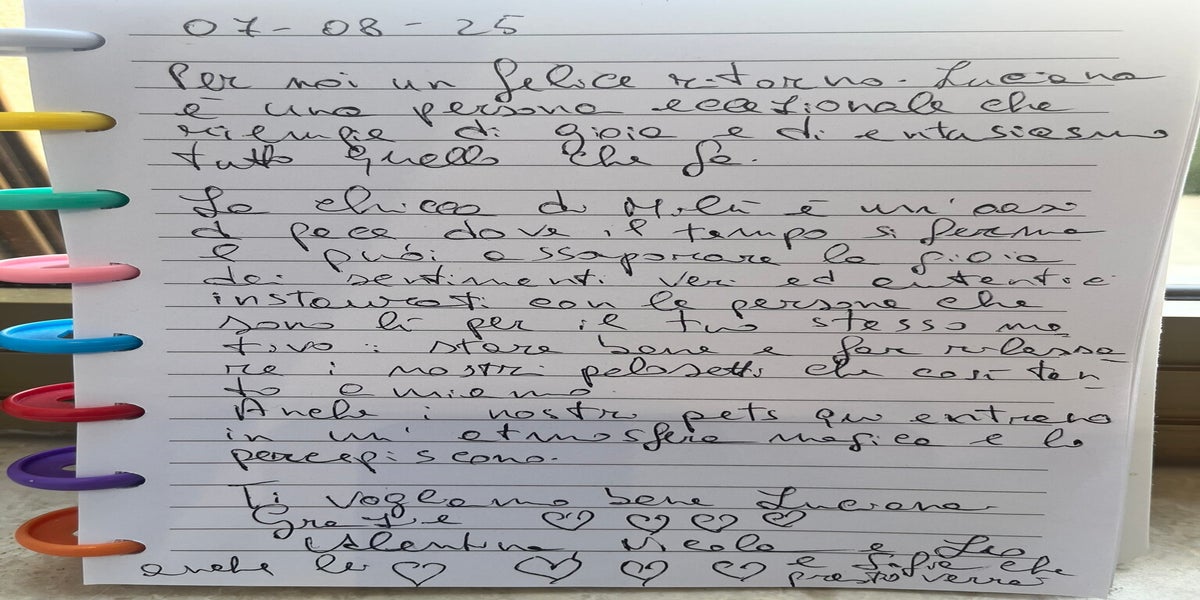 07-08-25
Per noi un felice ritorno. Luciana
è una persona eccezionale che
riempie di gioia e di entusiasmo
tutto quello che fa.
La chicca di Milù è un'oasi
di pace dove il tempo si ferma
e puoi assaporare la gioia
dei sentimenti veri ed autentici
instaurati con le persone che
sono lì per il tuo stesso mo
tivo: stare bene e far rilassa
re i nostri pelosetti che così tan
to amiamo.
Anche i nostri pets qui entrano
in un'atmosfera magica e lo
percepiscono.
Ti vogliamo bene Luciana.
Grazie ♡ ♡ ♡ ♡
Valentina, Nicola e Leo
e Sofia che
anche lei ♡ ♡ ♡ ♡ presto verrà